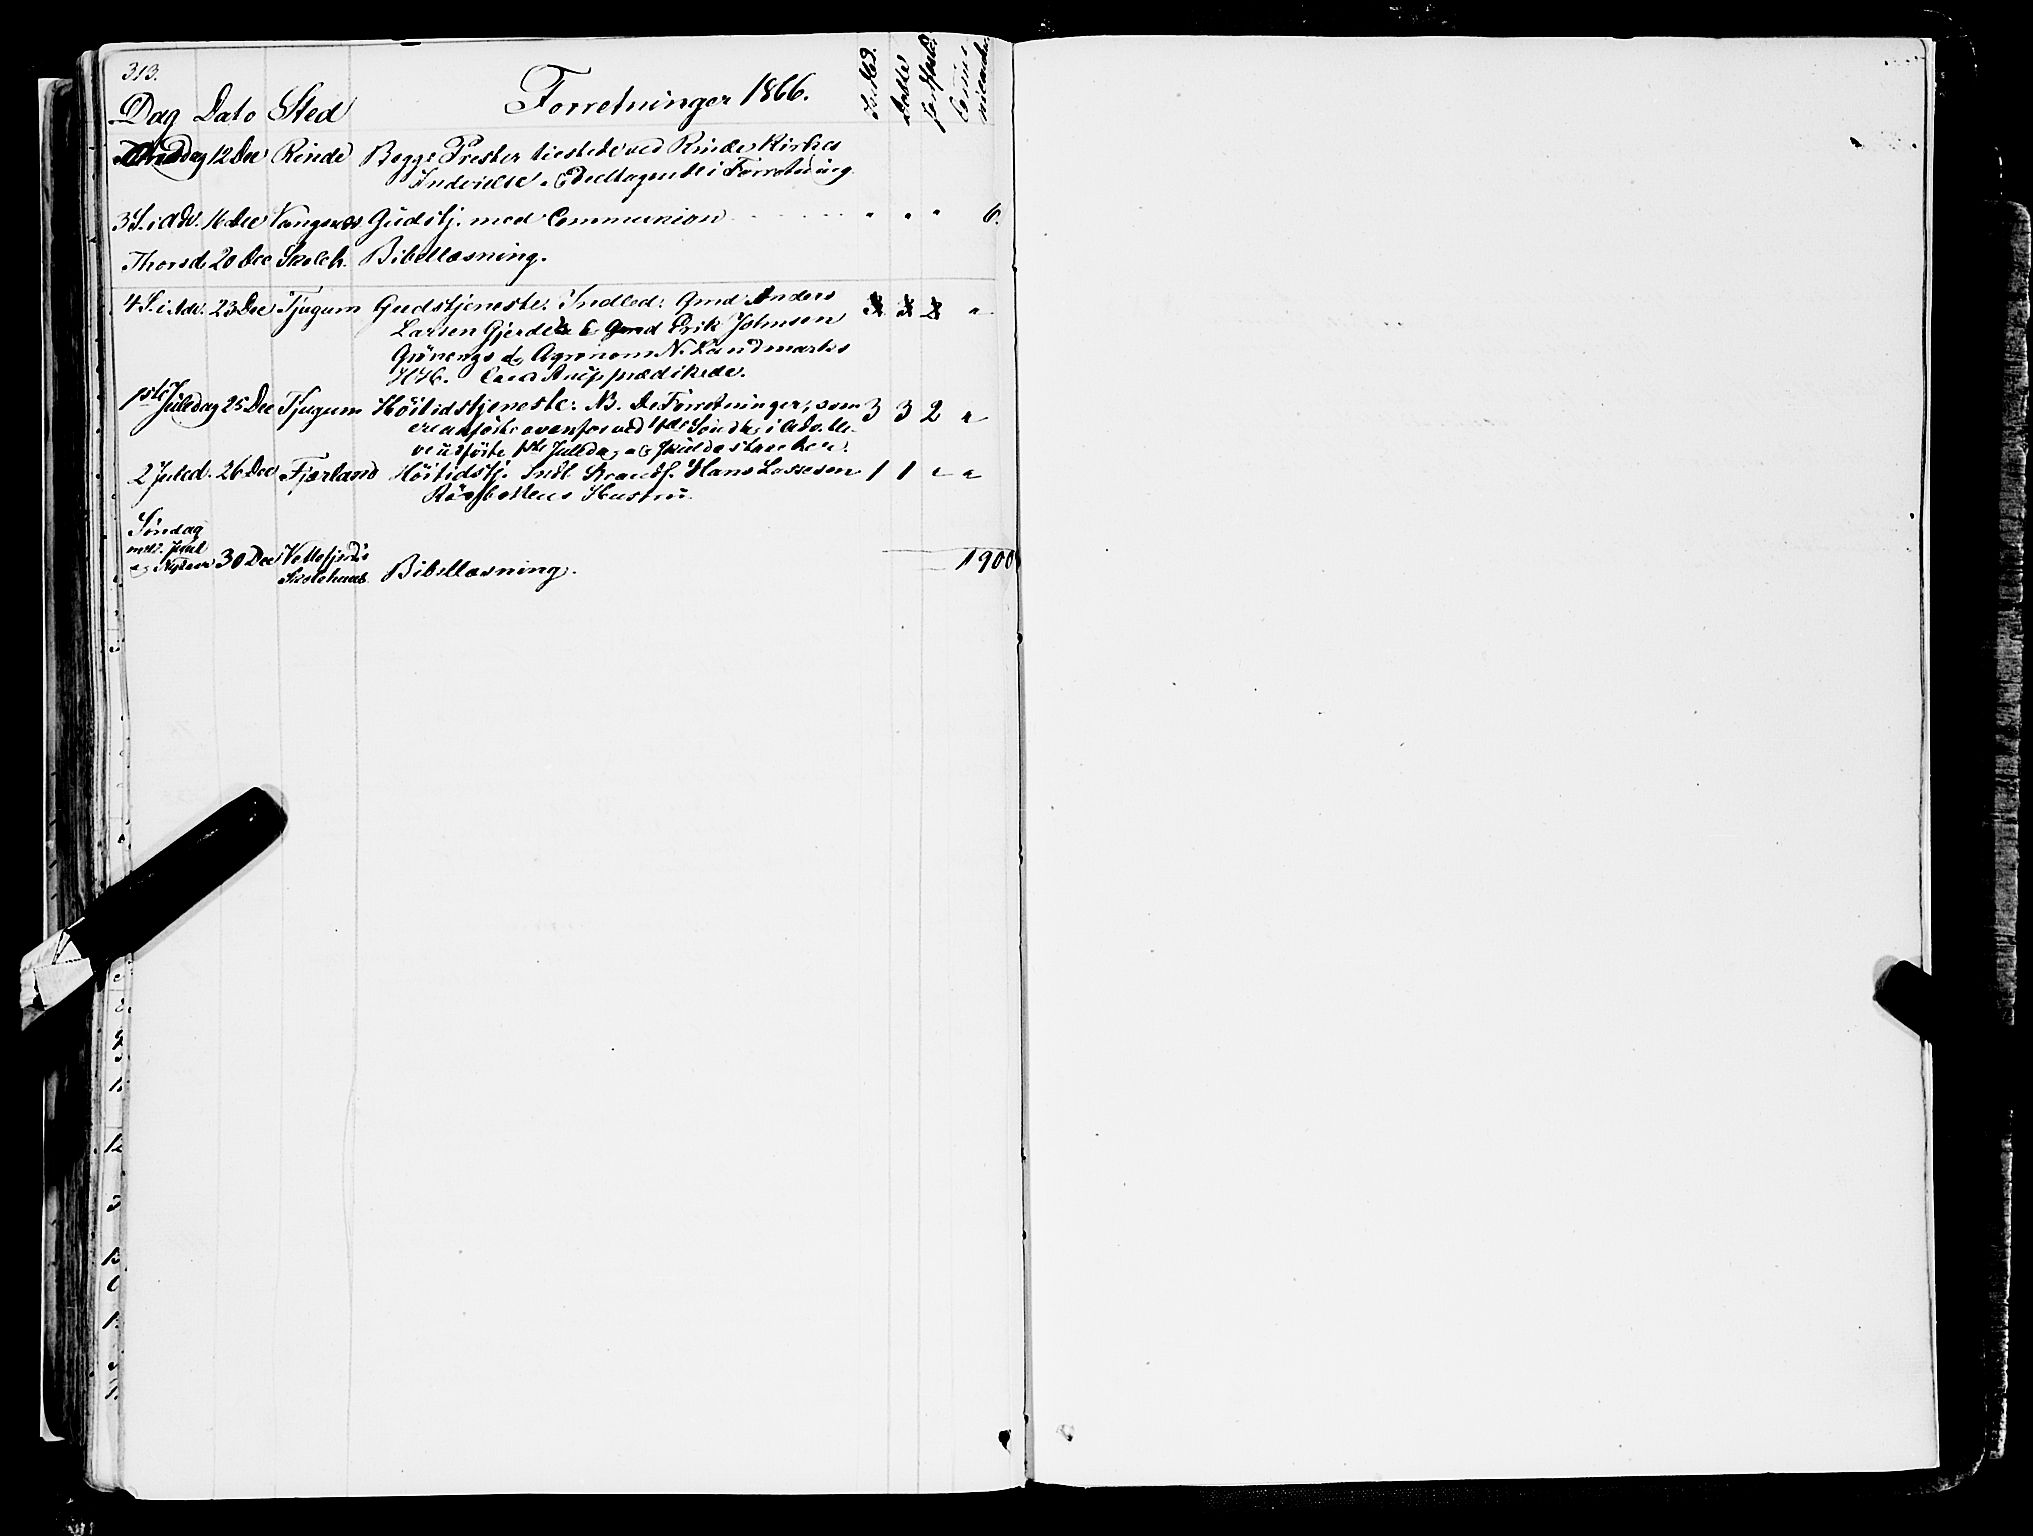 313.
Dag Dato Sted Forretninger 1866. Indl. Døbte
Onsdag 12 Dec Rinde Begge Prester tilstede ved Rinde Kirkes
Indvielse & deeltagende i Forretning.
3 S. i Adv. 16 Dec Vangsnes Gudstj. med Communion - - - - - " " " 6.
Thorsd. 20 Dec Skoleh. Bibellæsning.
4 S. i Adv. 23 Dec Tjugum Gudstjeneste. Indled: Gmd Anders 3 3 2 "
Larsen Gjerde & Gmd Erik Johnsen
Agronom N. Landmarks
prædikede.
1ste Juledag 25 Dec Tjugum Høitidstjeneste: NB. De Forretninger, som 3 3 2 "
ere anførte ovenfor ved 4de Søndag i Adv. ble-
ve udførte 1ste Juledag
2 Juled. 26 Dec Fjærland Høitidstj. Indl Hans Lassesen 1 1 " "
Hustru.
Søndag
mell. Juul
og Nytaar 30 Dec Vetlefjords 1900
Skolehuus. Bibellæsning.